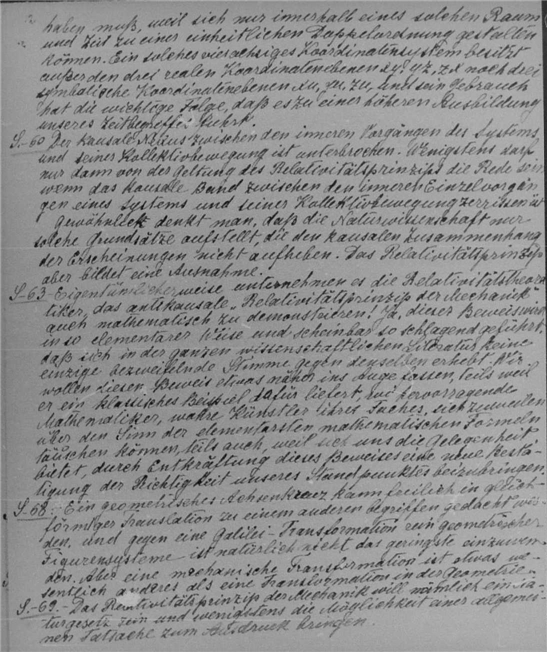 haben muß, weil sich nur innerhalb eines solchen Raum
und Zeit zu einer einheitlichen Doppelordnung gestalten
können. Ein solches vierachsiges Koordinatensystem besitzt
außer den drei realen Koordinatenebenen xy, yz, zx noch drei
symbolische Koordinatenebenen xu, yu, zu, und sein Gebrauch
hat die wichtige Folge, daß es zu einer höheren Ausbildung
unseres Zeitbegriffes führt.
S-60 Der kausale Nexus zwischen den inneren Vorgängen des Systems
und seiner Kollektivbewegung ist unterbrochen. Wenigstens darf
nur dann von der Geltung des Relativitätsprinzips die Rede sein
wenn das kausale Band zwischen den inneren Einzelvorgän
gen eines Systems und seiner Kollektivbewegung zerrissen ist
Gewöhnlich denkt man, daß die Naturwissenschaft nur
solche Grundsätze aufstellt, die den kausalen Zusammenhang
der Erscheinungen nicht aufheben. Das Relativitätsprinzip
aber bildet eine Ausnahme.
S-63-Eigentümlicherweise unternehmen es die Relativitätstheore
tiker, das antikausale Relativitätsprinzip der Mechanik
auch mathematisch zu demonstrieren! Ja, dieser Beweis wird
in so elementarer Weise und scheinbar so schlagend geführt,
daß sich in der ganzen wissenschaftlichen Literatur keine
einzige bezweifelnde Stimme gegen denselben erhebt. Wir
wollen diesen Beweis etwas näher ins Auge fassen, teils weil
er ein klassisches Beispiel dafür liefert, wie hervorragende
Mathematiker, wahre Künstler ihres Faches, sich zuweilen
über den Sinn der elementarsten mathematischen Formeln
täuschen können, teils auch, weil sich uns die Gelegenheit
bietet, durch Entkräftung dieses Beweises eine neue Bestä-
tigung der Richtigkeit unseres Standpunktes beizubringen.
S-68: Ein geometrisches Achsenkreuz kann freilich in gleich-
förmiger Translation zu einem anderen begriffen gedacht wer-
den, und gegen eine Galilei-Transformation rein geometrischer
Figurensysteme ist natürlich nicht das geringste einzuwen-
den. Aber eine mechanische Transformation ist etwas we-
sentlich anderes als eine Transformation in der Geometrie.
S-69-Das Relativitätsprinzip der Mechanik will nämlich ein Na-
turgesetz sein und wenigstens die Möglichkeit einer allgemei-
nen Tatsache zum Ausdruck bringen.